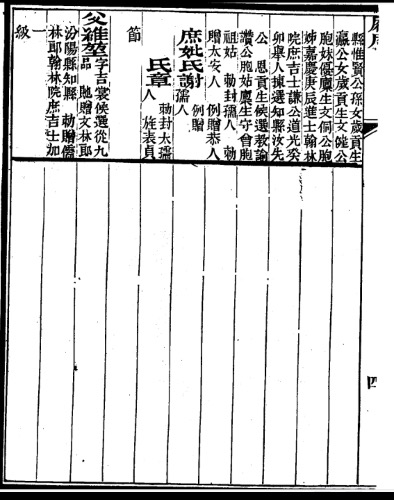 縣惟賢公孫女歲貢生
瀛公女歲貢生文
胞妹優廩生文侗公胞
姊嘉慶庚辰進士翰林
院庶吉士謙公道光癸
卯舉人揀選知縣汝先
公 恩貢生候選教諭
讚公胞姑廩生守曾胞
祖姑 勅封孺人 勅
贈太安人 例贈恭人
庶妣氏謝 例贈孺人
氏章 勅封太孺人 旌表貞
節
父 字吉裳候選從九品 馳贈文林郎
汾陽縣知縣 勅贈儒
林郎翰林院庶吉士加
一級
四